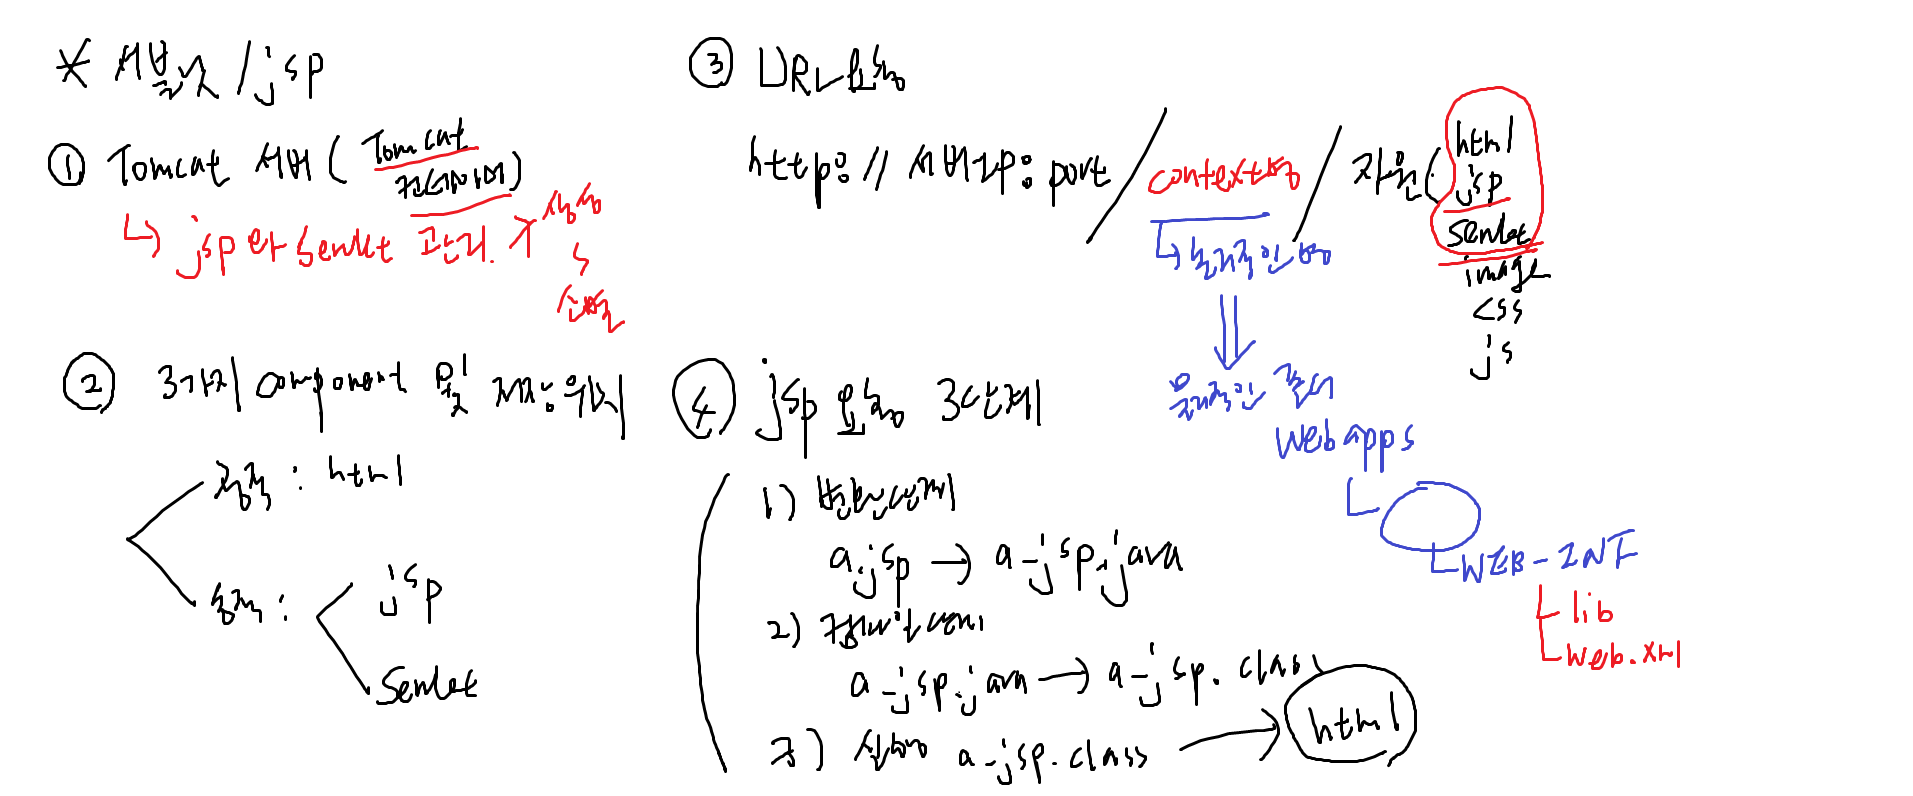 * 서블릿/jsp
① Tomcat 서버 ( Tomcat
컨테이너)
↳ jsp와 Servlet 관리. 생성
소멸
② 3가지 component 및 저장위치
정적 : html
동적 : jsp
Servlet
③ URL 요청
http://서버IP:port/context명/자원(html
jsp
servlet
image
css
js
↳ 논리적인 명
⇓
물리적인 폴더
Webapps
WEB-INF
lib
web.xml
④ jsp 요청 3단계
1) 변환단계
a.jsp → a_jsp.java
2) 컴파일단계
a_jsp.java → a_jsp.class
3) 실행 a_jsp.class → html